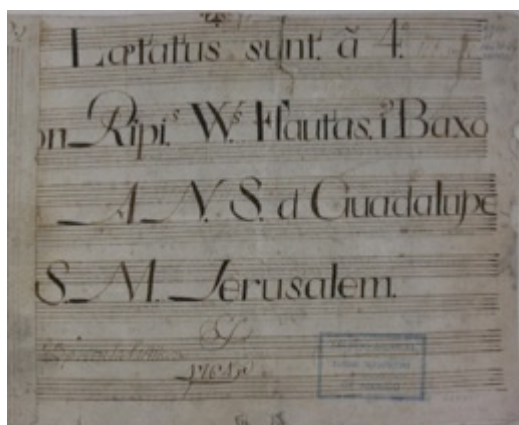 Lætatus sunt. à 4.
on Ripi.s W.s Flautas. i Baxo
A N. S. d Guadalupe
S. M. Jerusalem.